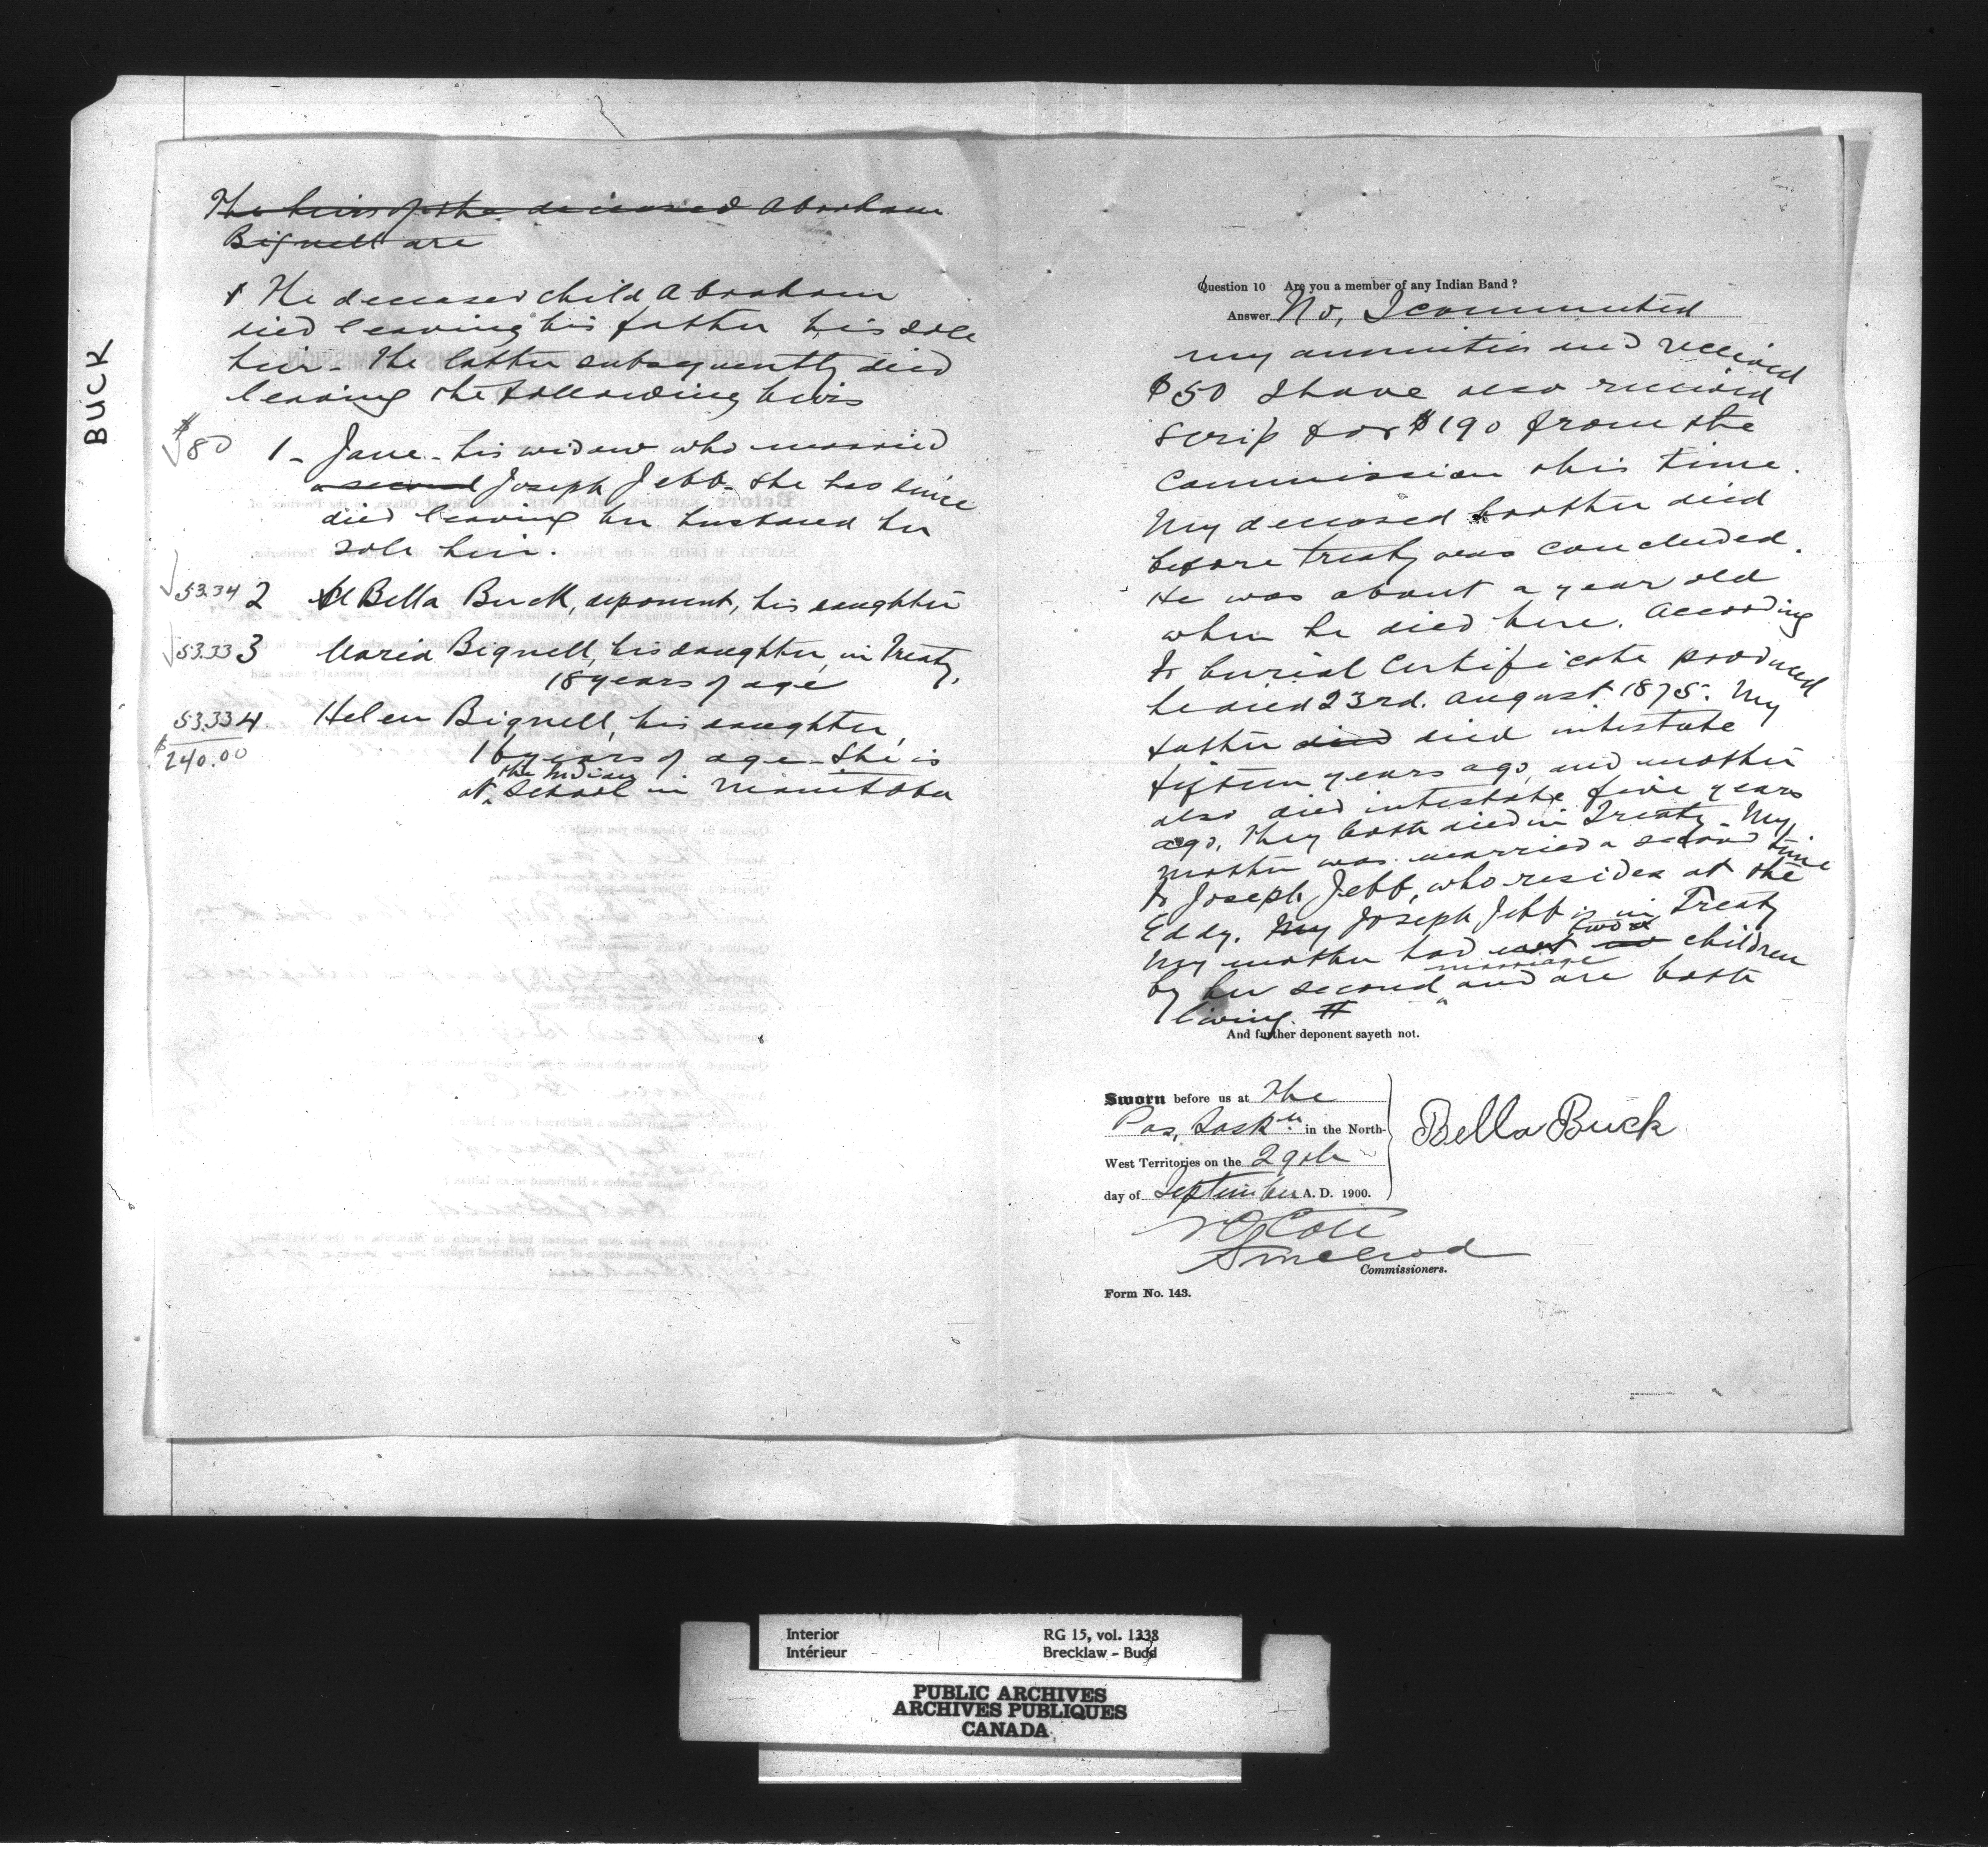 BUCK
The heirs of the deceased Abraham
Bignell are
The deceased child Abraham
died leaving his father his sole
heir - The latter subsequently died
leaving the following heirs
$80 1 - Jane - his widow who married
a second Joseph Jebb - She has since
died leaving her husband her
sole heir.
53.34 2 Bella Buck, deponent, his daughter
53.33 3 Maria Bignell, his daughter, in Treaty,
18 years of age
53.33 4. Helen Bignell, his daughter,
$240.00
16 years of age - She is
at the Indian School in Manitoba
Question 10 Are you a member of any Indian Band?
Answer No, I commuted
my annuities and received
$50 I have also received
scrip for $190 from the
Commission this time.
My deceased brother died
before treaty was concluded.
He was about a year old
when he died here. According
to burial Certificate produced
he died 23rd. August 1875. My
father died died intestate
fifteen years ago, and mother
also died intestate five years
ago. They both died in Treaty - My
mother was married a second time
to Joseph Jebb, who resides at the
Eddy. My Joseph Jebb is in Treaty
My mother had two children
by her second marriage and are both
living. #
And further deponent sayeth not.
Sworn before us at The
Pas, Saskn. in the North-
West Territories on the 29th
day of September A. D. 1900.
Bella Buck
N O Coté
S McLeod
Commissioners.
Form No. 143.
Interior RG 15, vol. 1338
Intérieur Brecklaw - Budd
PUBLIC ARCHIVES
ARCHIVES PUBLIQUES
CANADA